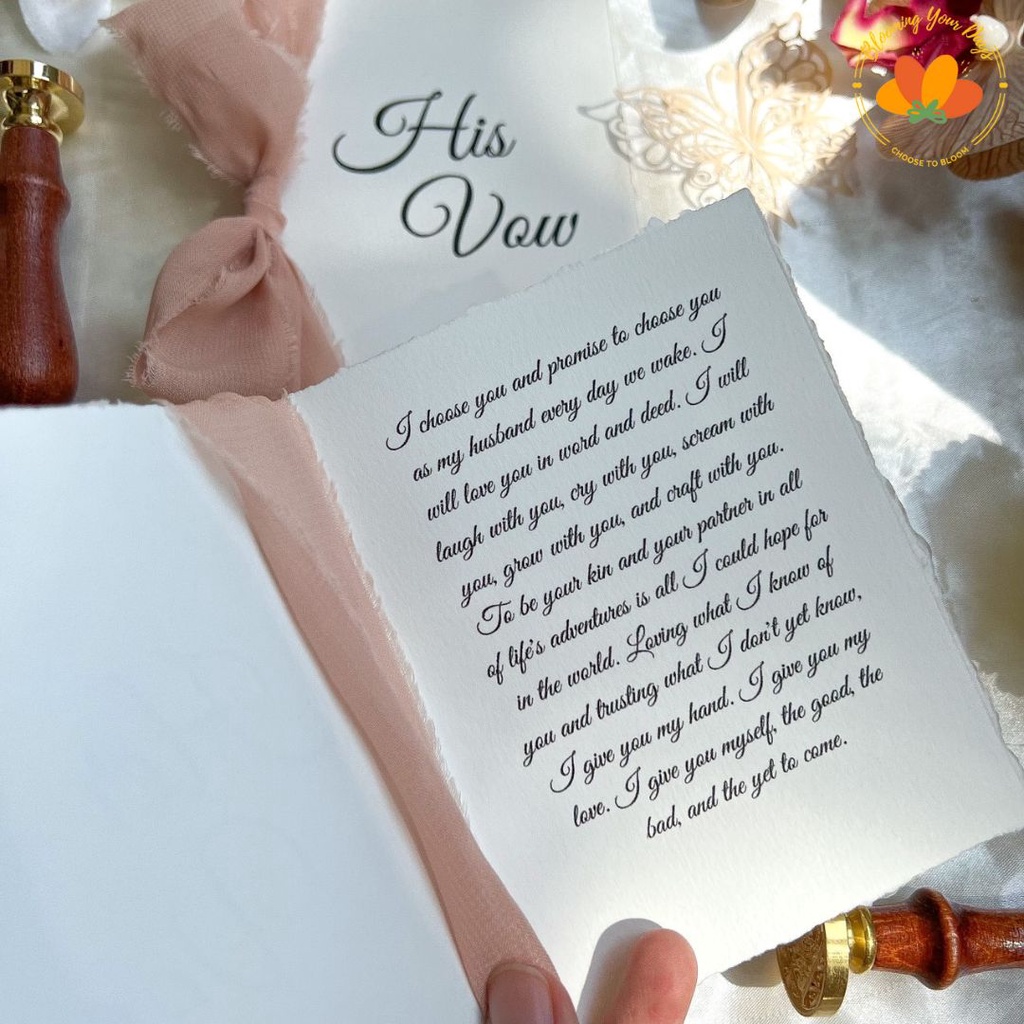 Blooming Your Days
CHOOSE TO BLOOM
His
Vow
I choose you and promise to choose you
as my husband every day we wake. I
will love you in word and deed. I will
laugh with you, cry with you, scream with
you, grow with you, and craft with you.
To be your kin and your partner in all
of life's adventures is all I could hope for
in the world. Loving what I know of
you and trusting what I don't yet know,
I give you my hand. I give you my
love. I give you myself, the good, the
bad, and the yet to come.